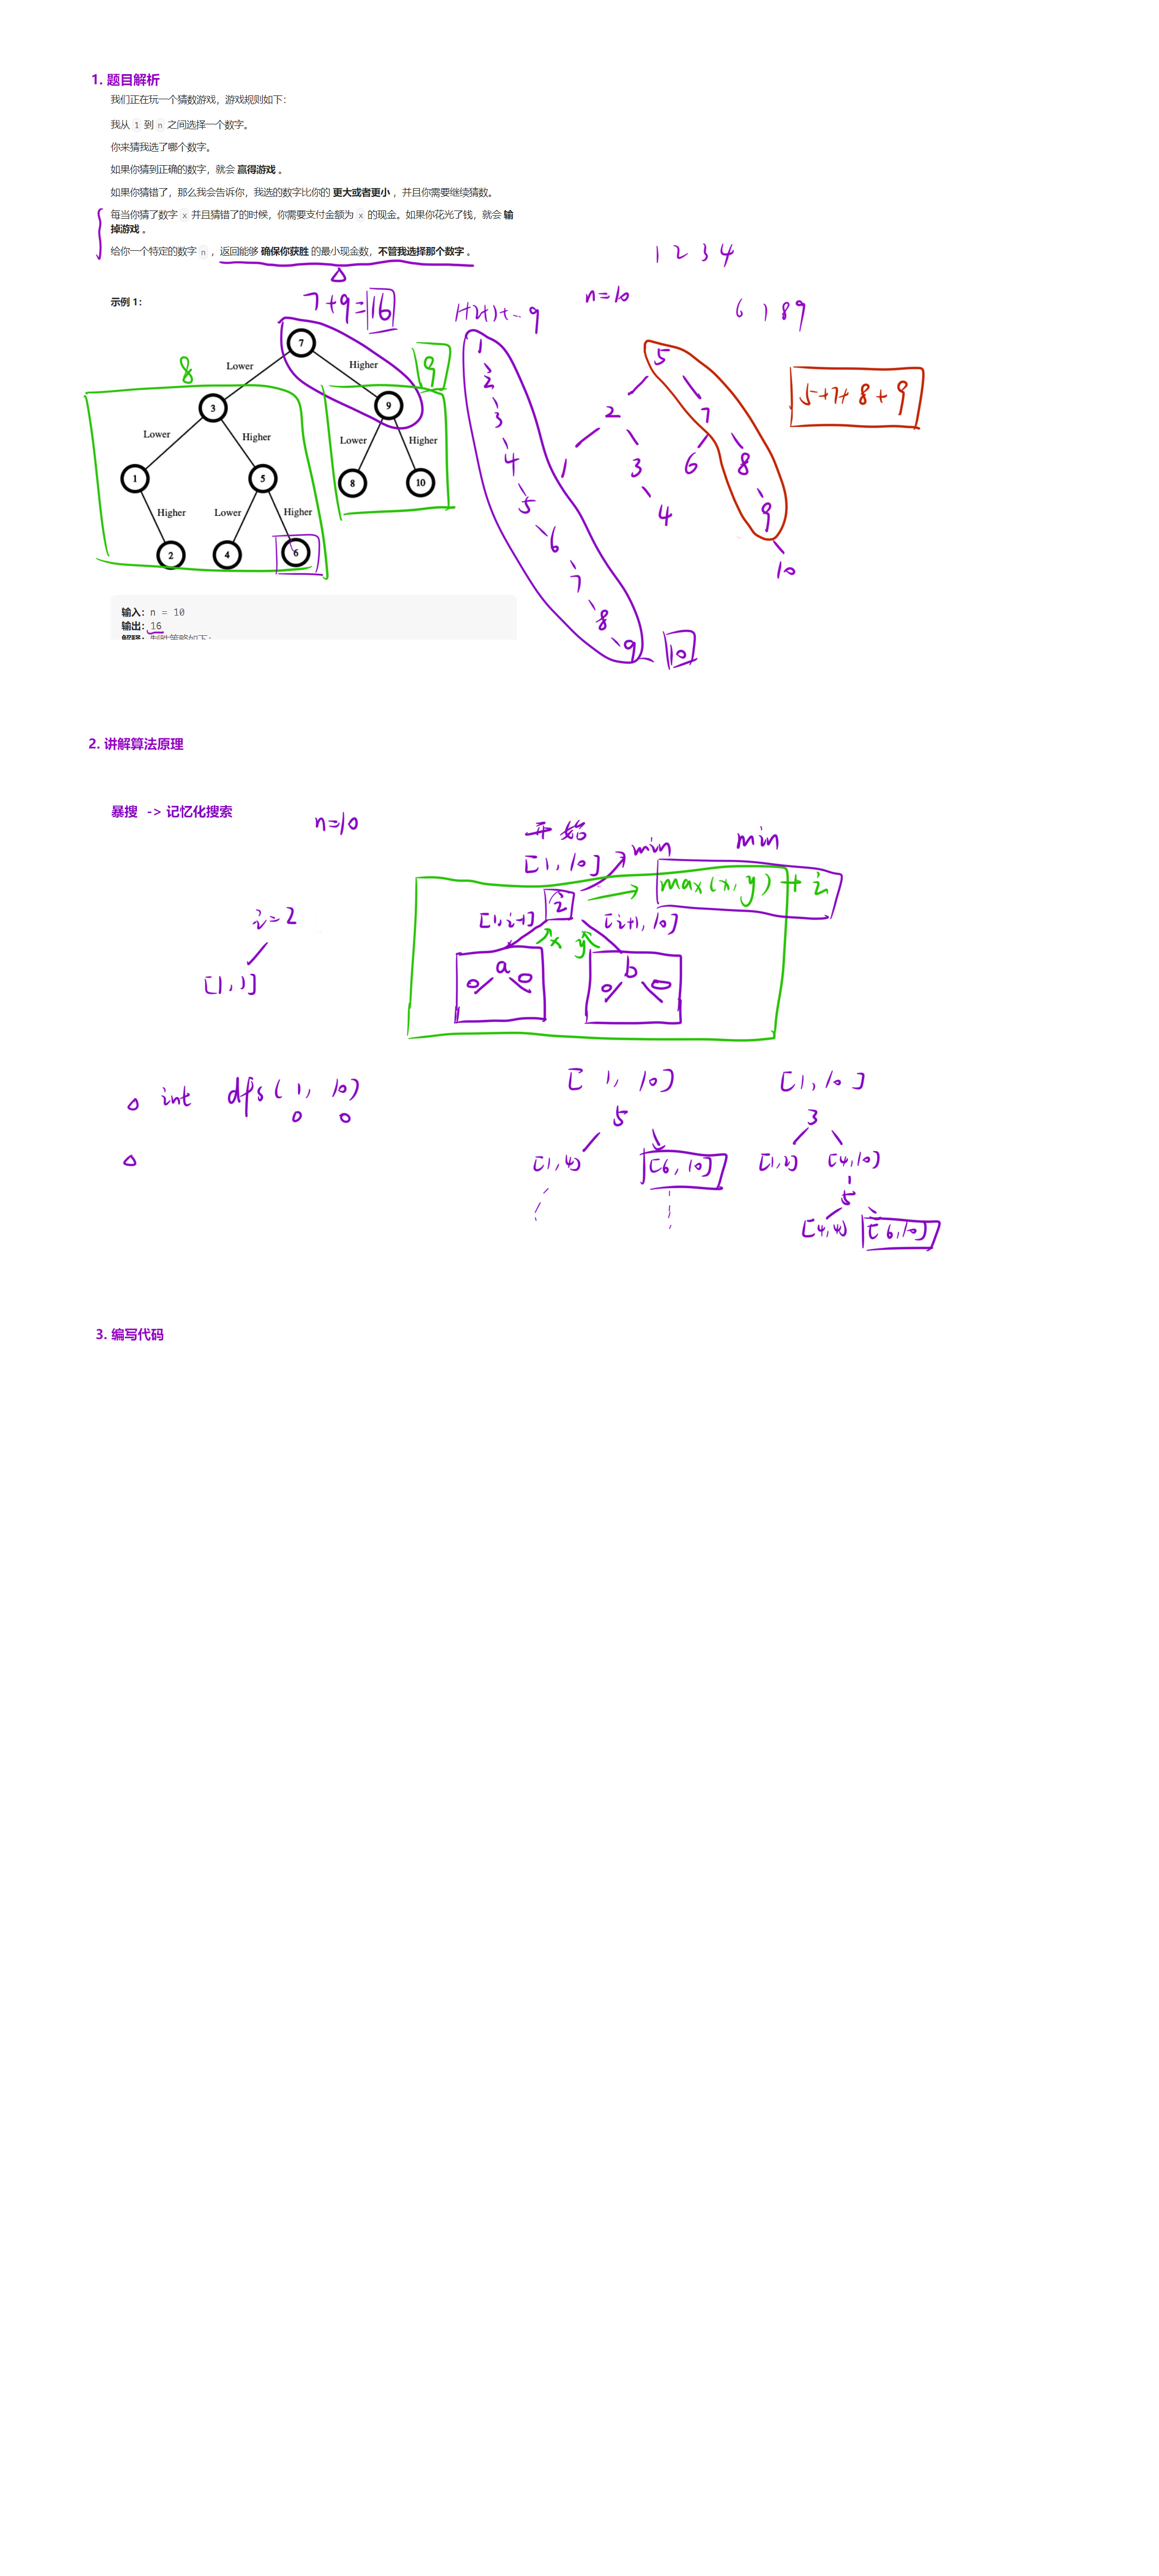 1. 题目解析
我们正在玩一个猜数游戏，游戏规则如下：
我从 1 到 n 之间选择一个数字。
你来猜我选了哪个数字。
如果你猜到正确的数字，就会 赢得游戏 。
如果你猜错了，那么我会告诉你，我选的数字比你的 更大或者更小 ，并且你需要继续猜数。
每当你猜了数字 x 并且猜错了的时候，你需要支付金额为 x 的现金。如果你花光了钱，就会 输
掉游戏 。
给你一个特定的数字 n ，返回能够 确保你获胜 的最小现金数，不管我选择那个数字 。
1 2 3 4
示例 1：
7+9=16
n=10
6 7 8 9
7
Lower
Higher
8
9
3
9
Lower
Higher
Lower
Higher
1
5
8
10
Higher
Lower
Higher
2
4
6
1
2
3
4
5
6
7
8
9
10
5
2
7
1
3
6
8
4
9
10
5+7+8+9
输入：n = 10
输出：16
解释：制胜策略如下：
2. 讲解算法原理
暴搜 -> 记忆化搜索
n=10
开始
[1, 10]
min
min
max(x, y) + i
i
[1, i-1]
[i+1, 10]
x y
a
b
i=2
[1, 1]
int dfs(1, 10)
[1, 10]
5
[1, 4]
[6, 10]
[1, 10]
3
[1, 2]
[4, 10]
5
[4, 4]
[6, 10]
3. 编写代码